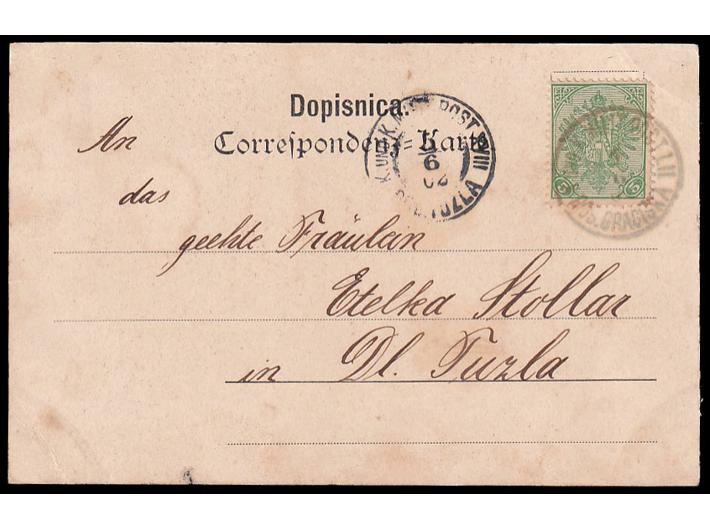 Dopisnica.
Correspondenz-Karte
An
das
geehte Fräulein
Etelka Stollar
in Dl. Tuzla
K. UND K. MILIT. POST XVIII
6
02
DOL. TUZLA
5 5
BOS. GRADISKA